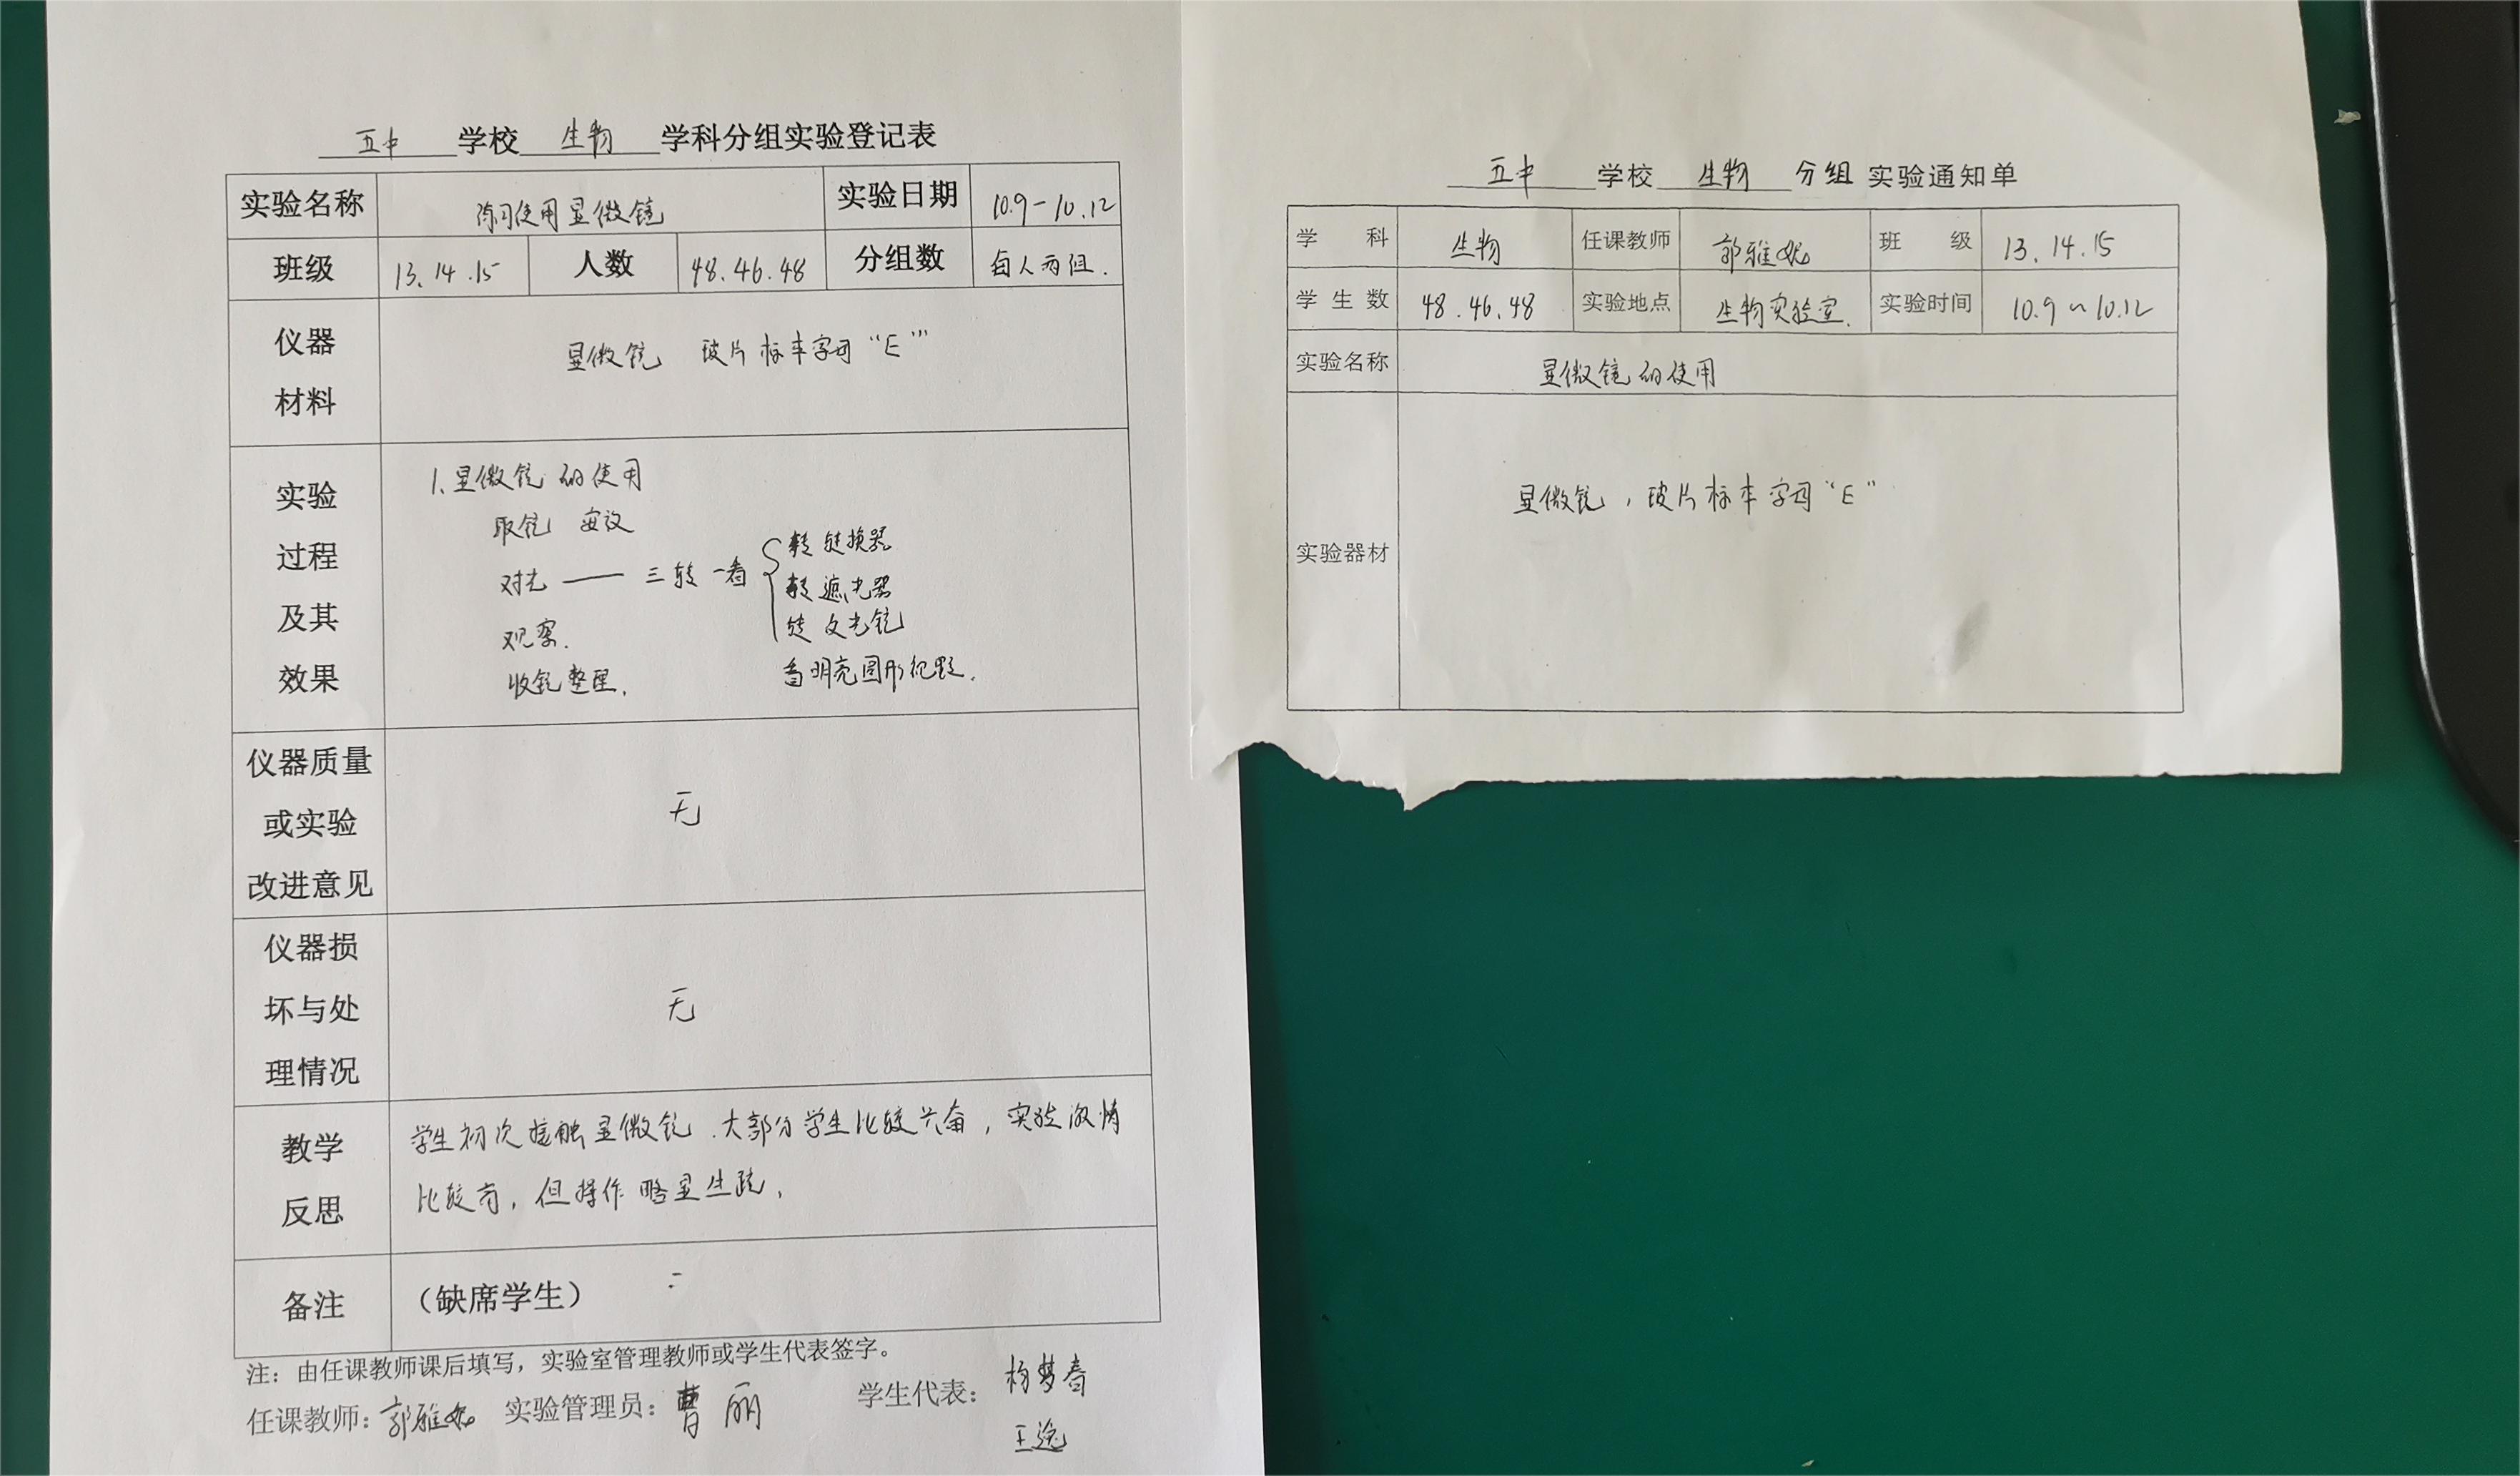 五中 学校 生物 学科分组实验登记表
实验名称 练习使用显微镜 实验日期 10.9-10.12
班级 13.14.15 人数 48.46.48 分组数 每人两组.
仪器材料 显微镜 玻片标本字母“E”
实验过程及其效果
1.显微镜的使用
取镜 安放
对光 —— 三转一看
转转换器
转遮光器
转反光镜
看明亮圆形视野.
观察.
收镜整理.
仪器质量或实验改进意见 无
仪器损坏与处理情况 无
教学反思
学生初次接触显微镜.大部分学生比较兴奋，实验激情
比较高，但操作略显生疏.
备注 （缺席学生）
注：由任课教师课后填写，实验室管理教师或学生代表签字。
任课教师：郭雅妮 实验管理员：曹丽 学生代表：杨梦春
王逸
五中 学校 生物 分组 实验通知单
学科 生物 任课教师 郭雅妮 班级 13.14.15
学生数 48.46.48 实验地点 生物实验室. 实验时间 10.9~10.12
实验名称 显微镜的使用
实验器材 显微镜，玻片标本字母“E”